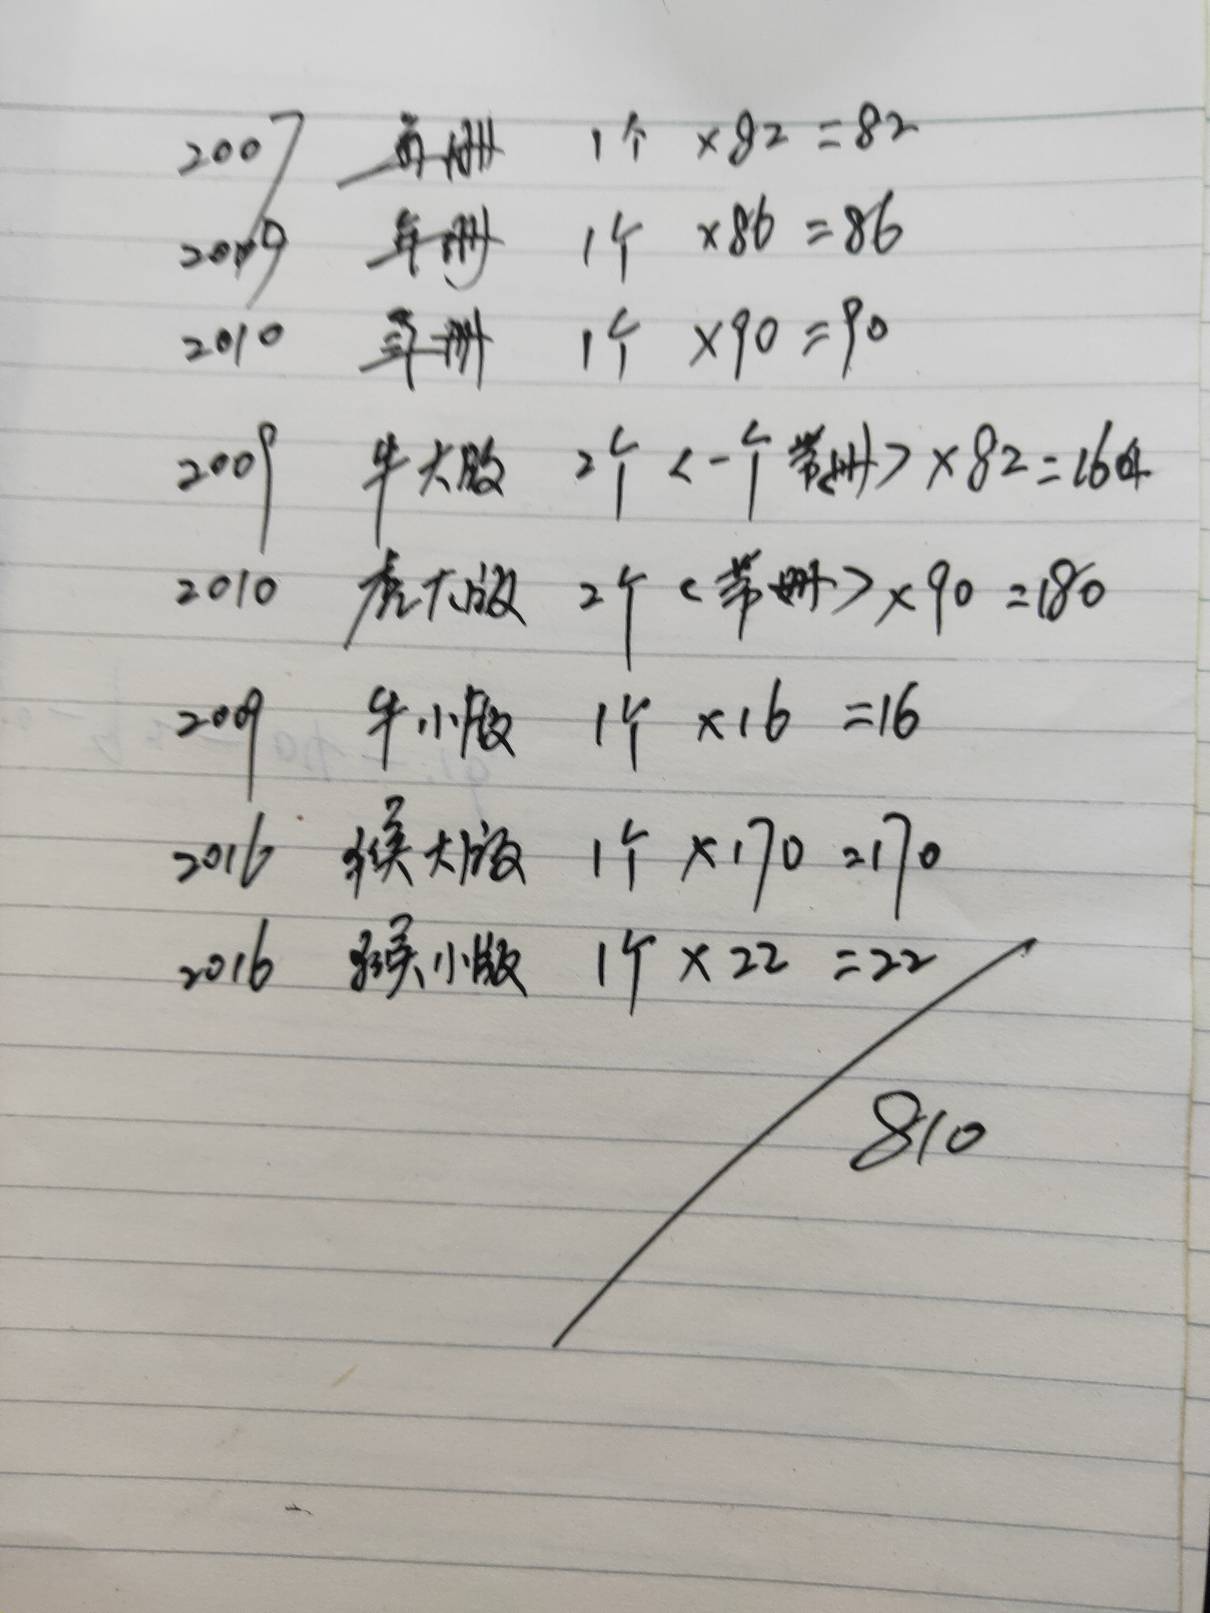 2007 年册 1个 ×82=82
2009 年册 1个 ×86=86
2010 年册 1个 ×90=90
2009 牛大版 2个<一个带册>×82=164
2010 虎大版 2个<带册>×90=180
2009 牛小版 1个 ×16=16
2016 猴大版 1个×170=170
2016 猴小版 1个×22=22
810